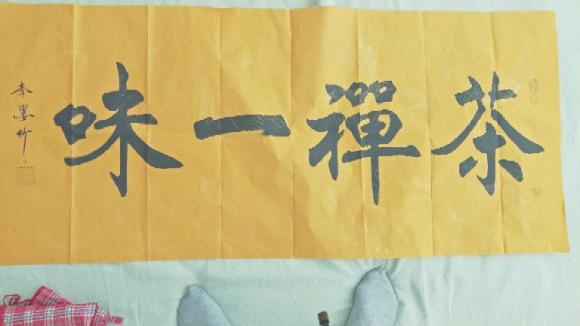 茶禪一味
李墨竹